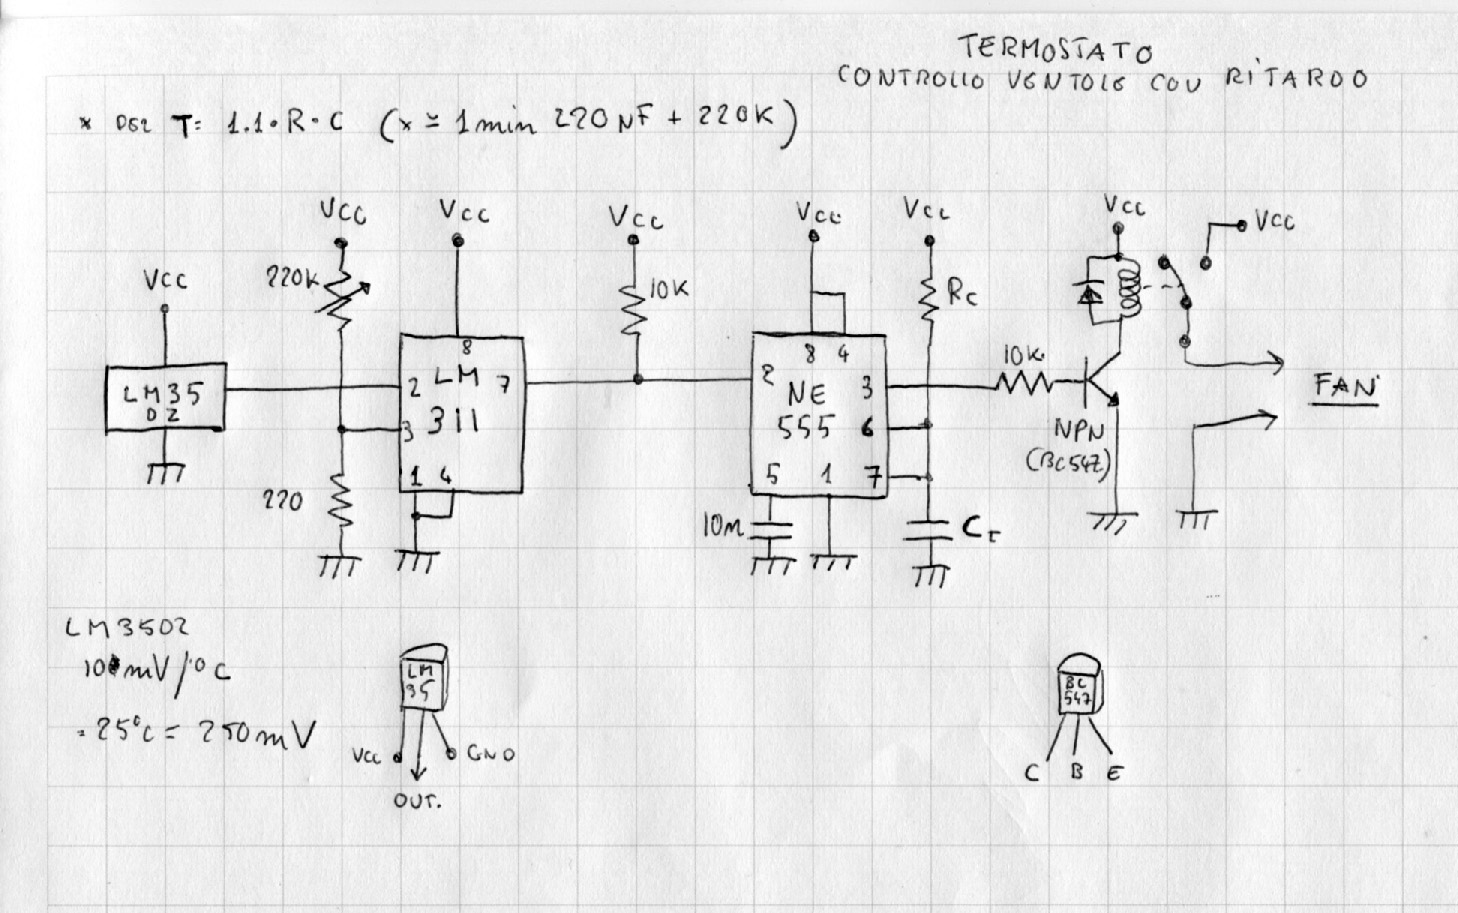 TERMOSTATO
CONTROLLO VENTOLE CON RITARDO
* DEL T= 1.1•R•C (x ≃ 1 min 220 NF + 220K)
VCC VCC VCC VCC VCC VCC
VCC
VCC
220K
10K
RC
8
8 4
10K
LM35
DZ
2 LM 7
311
3
1 4
2 NE 3
555 6
5 1 7
FAN
NPN
(BC547)
220
10n
Ct
LM35DZ
10 mV/°C
= 25°C = 250mV
LM
35
VCC GND
OUT.
BC
547
C B E